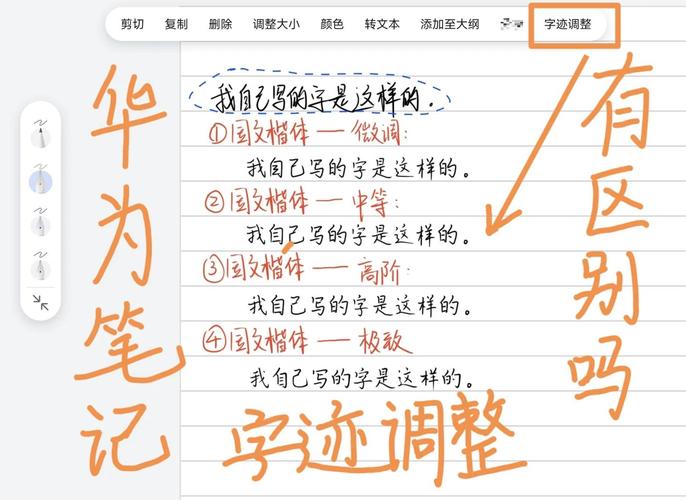 剪切 复制 删除 调整大小 颜色 转文本 添加至大纲 字迹调整
我自己写的字是这样的.
①国文楷体——微调:
我自己写的字是这样的。
②国文楷体——中等:
我自己写的字是这样的。
③国文楷体——高阶:
我自己写的字是这样的。
④国文楷体——极致
我自己写的字是这样的。
华为笔记
字迹调整
有区别吗